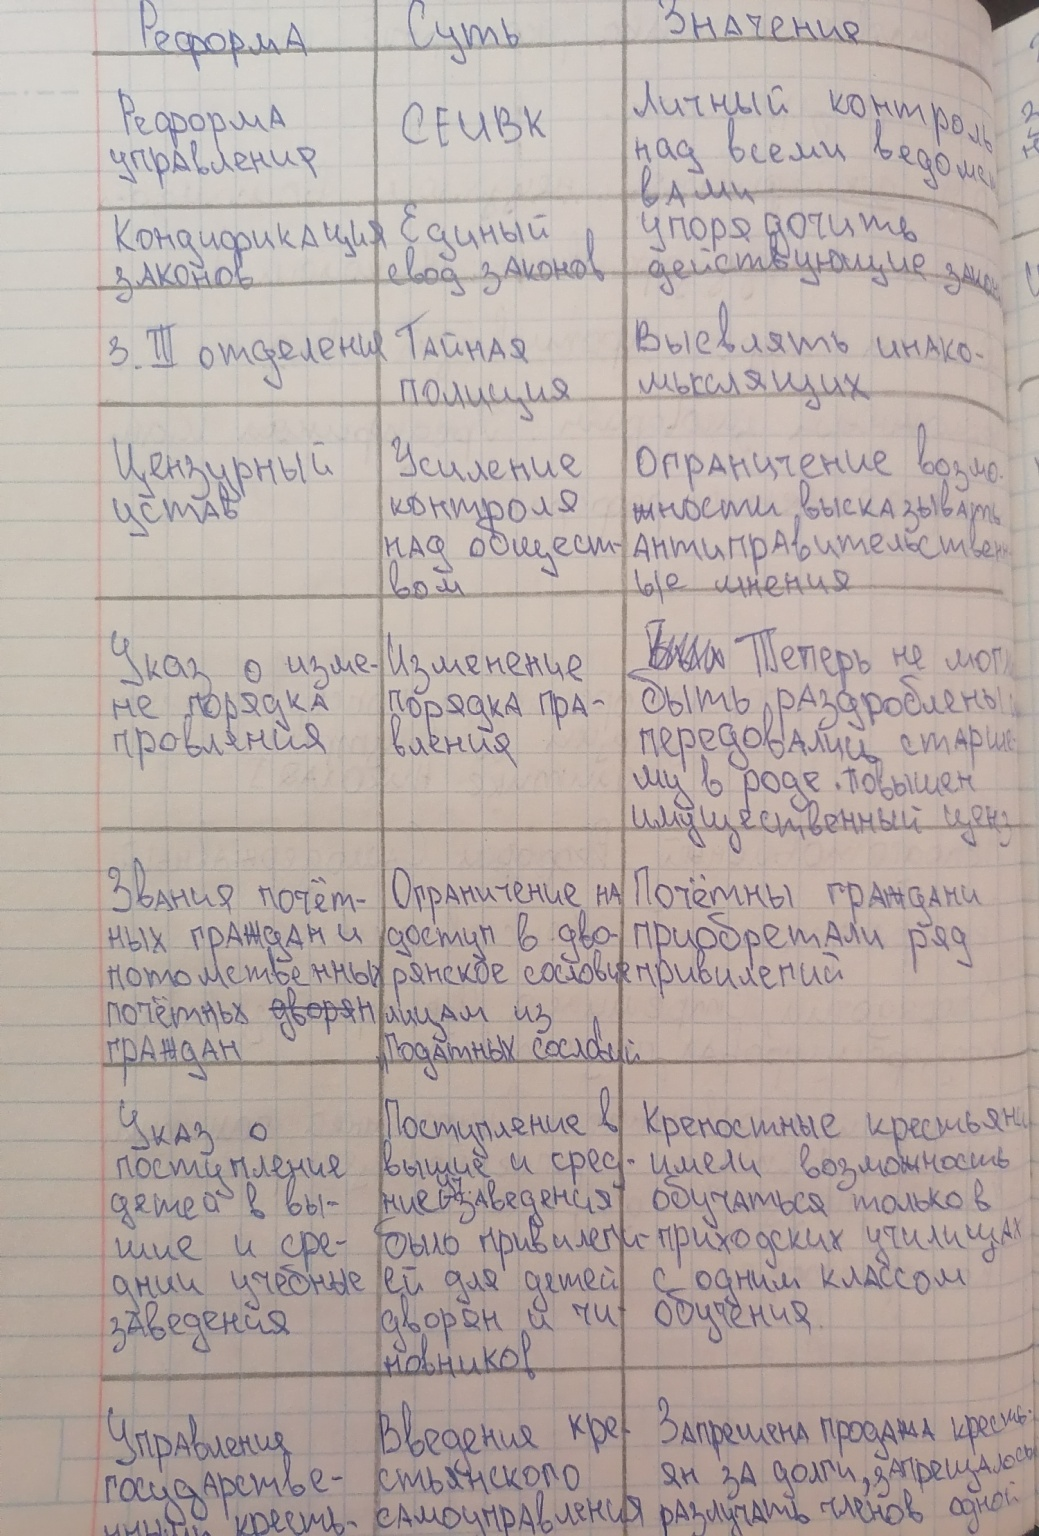 Реформа Суть Значения
Реформа
управления
СЕИВК
Личный контроль
над всеми ведомст
вами
Кондификация
законов
Единый
свод законов
упорядочить
действующие закон
3. III отделения
Тайная
полиция
Высвлять инако-
мыслящих
Цензурный
устав
Усиление
контроля
над общест-
вом
Ограничение возмо-
жности высказывать
антиправительственн
ые мнения
Указ о изме-
не порядка
провления
Изменение
порядка пра-
вления
Теперь не могл
быть раздроблены
передовались старше
му в роде. Повышен
имущественный ценз
Звания почёт-
ных граждан и
потомственных
почётных дворян
граждан
Ограничение на
доступ в дво-
рянское сословие
лицам из
податных сословий
Почётны граждани
приобретали ряд
привилегий
Указ о
поступление
детей в вы-
шие и сре-
днии учебные
заведения
Поступление в
вышие и сред-
ние уч. заведения
было привилеги-
ей для детей
дворян и чи-
новников
Крепостные крестьяни
имели возможность
обучаться только в
приходских училищах
с одним классом
обучения.
Управления
государстве-
нными кресть-
Введения кре-
стьянского
самоуправления
Запрешена продажа кресть-
ян за долги, запрещалось
разлучать членов одной